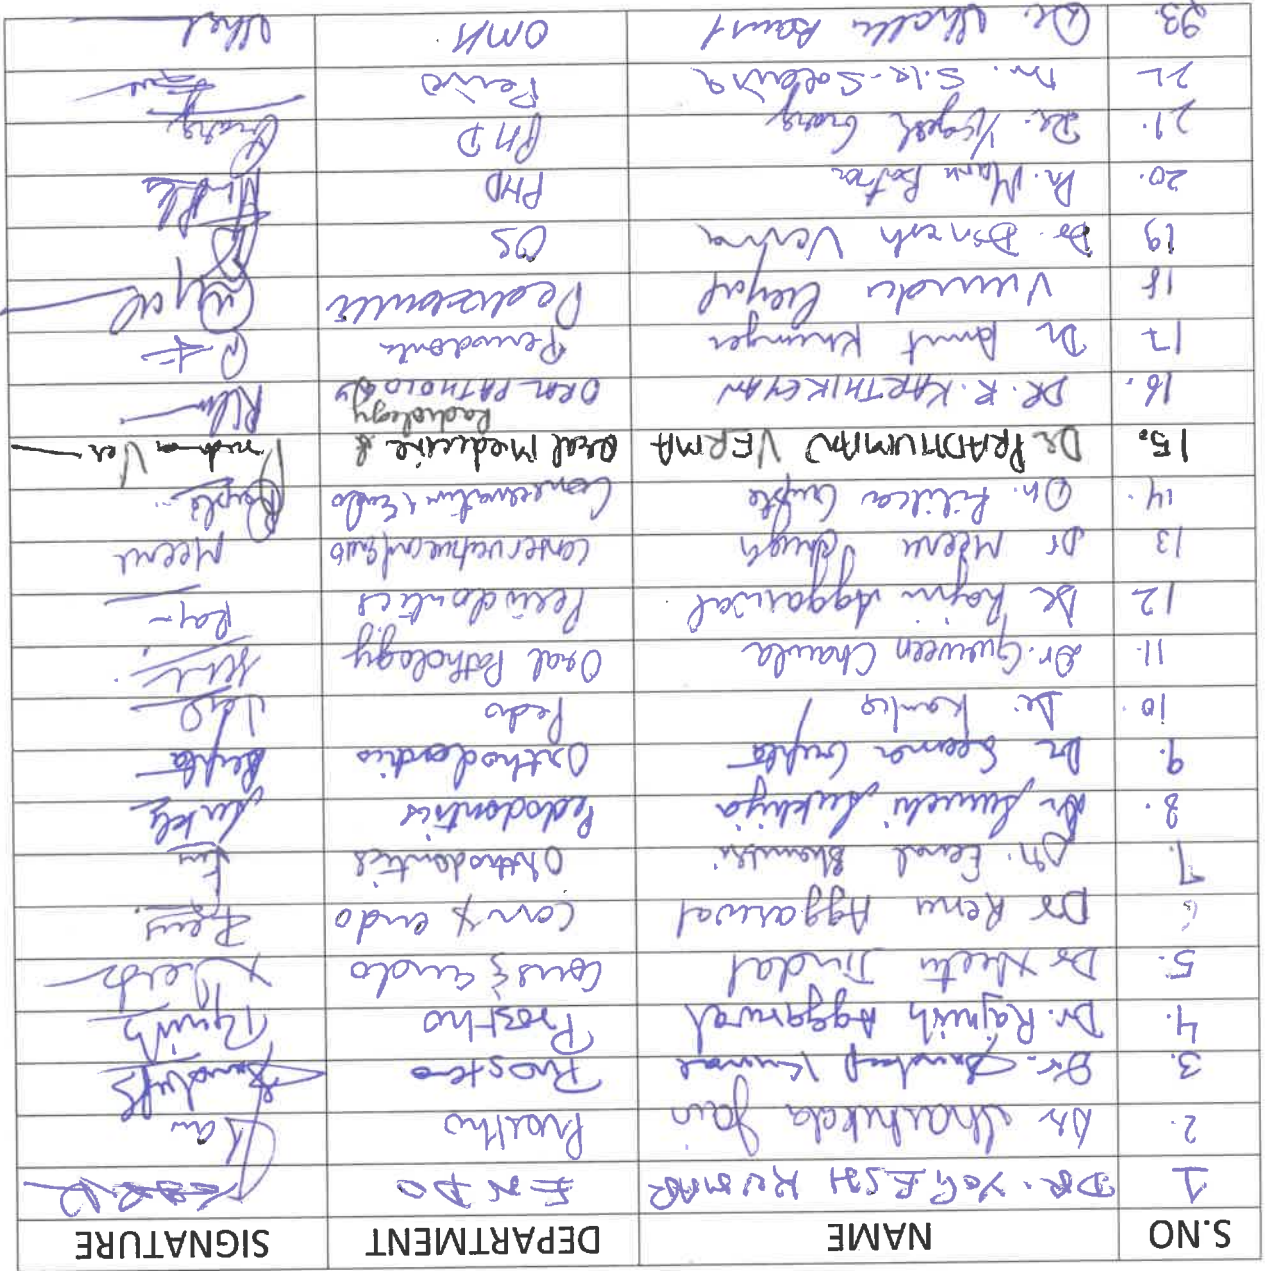 S.NO NAME DEPARTMENT SIGNATURE
1 DR. YOGESH KUMAR ENDO
2. Dr Shashikala Jain Prostho Jain
3. Dr. Sandeep Kumar Prostho
4. Dr. Rajnish Aggarwal Prostho Rajnish
5. Dr Neetu Jindal Cons & Endo Neetu
6 Dr Renu Aggarwal Con & endo Renu
7. Dr. Eenal Bhambri Orthodontics
8. Dr Suruchi Sukhija Pedodontics
9. Dr Seema Gupta Orthodontics Gupta
10. Dr. Pedo
11. Dr. Gurveen Chawla Oral Pathology
12 Dr Rajni Aggarwal Periodontics Raj
13 Dr Meenu Conservative and Endo Meenu
14. Dr. Ritika Gupta Conservative & Endo
15. Dr PRADHUMAN VERMA Oral Medicine & Radiology
16. DR. R. KARTHIKEYAN ORAL PATHOLOGY
17 Dr Amit Khunger Periodontic
18 Virinder Goyal Pedodontics Goyal
19 Dr. Dinesh Verma OS
20. Dr. Manu Batra PHD
21. Dr. Yogesh Garg PHD Garg
22 Dr. Perio
23. Dr. Shally OMR